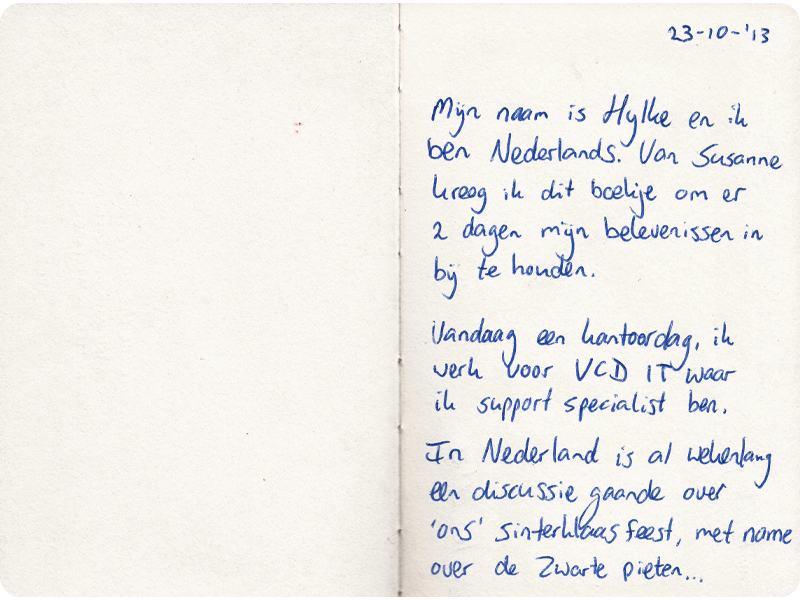 23-10-'13
Mijn naam is Hylke en ik
ben Nederlands. Van Susanne
kreeg ik dit boekje om er
2 dagen mijn belevenissen in
bij te houden.
Vandaag een kantoordag, ik
werk voor VCD IT waar
ik support specialist ben.
In Nederland is al wekenlang
een discussie gaande over
'ons' sinterklaasfeest, met name
over de Zwarte pieten...